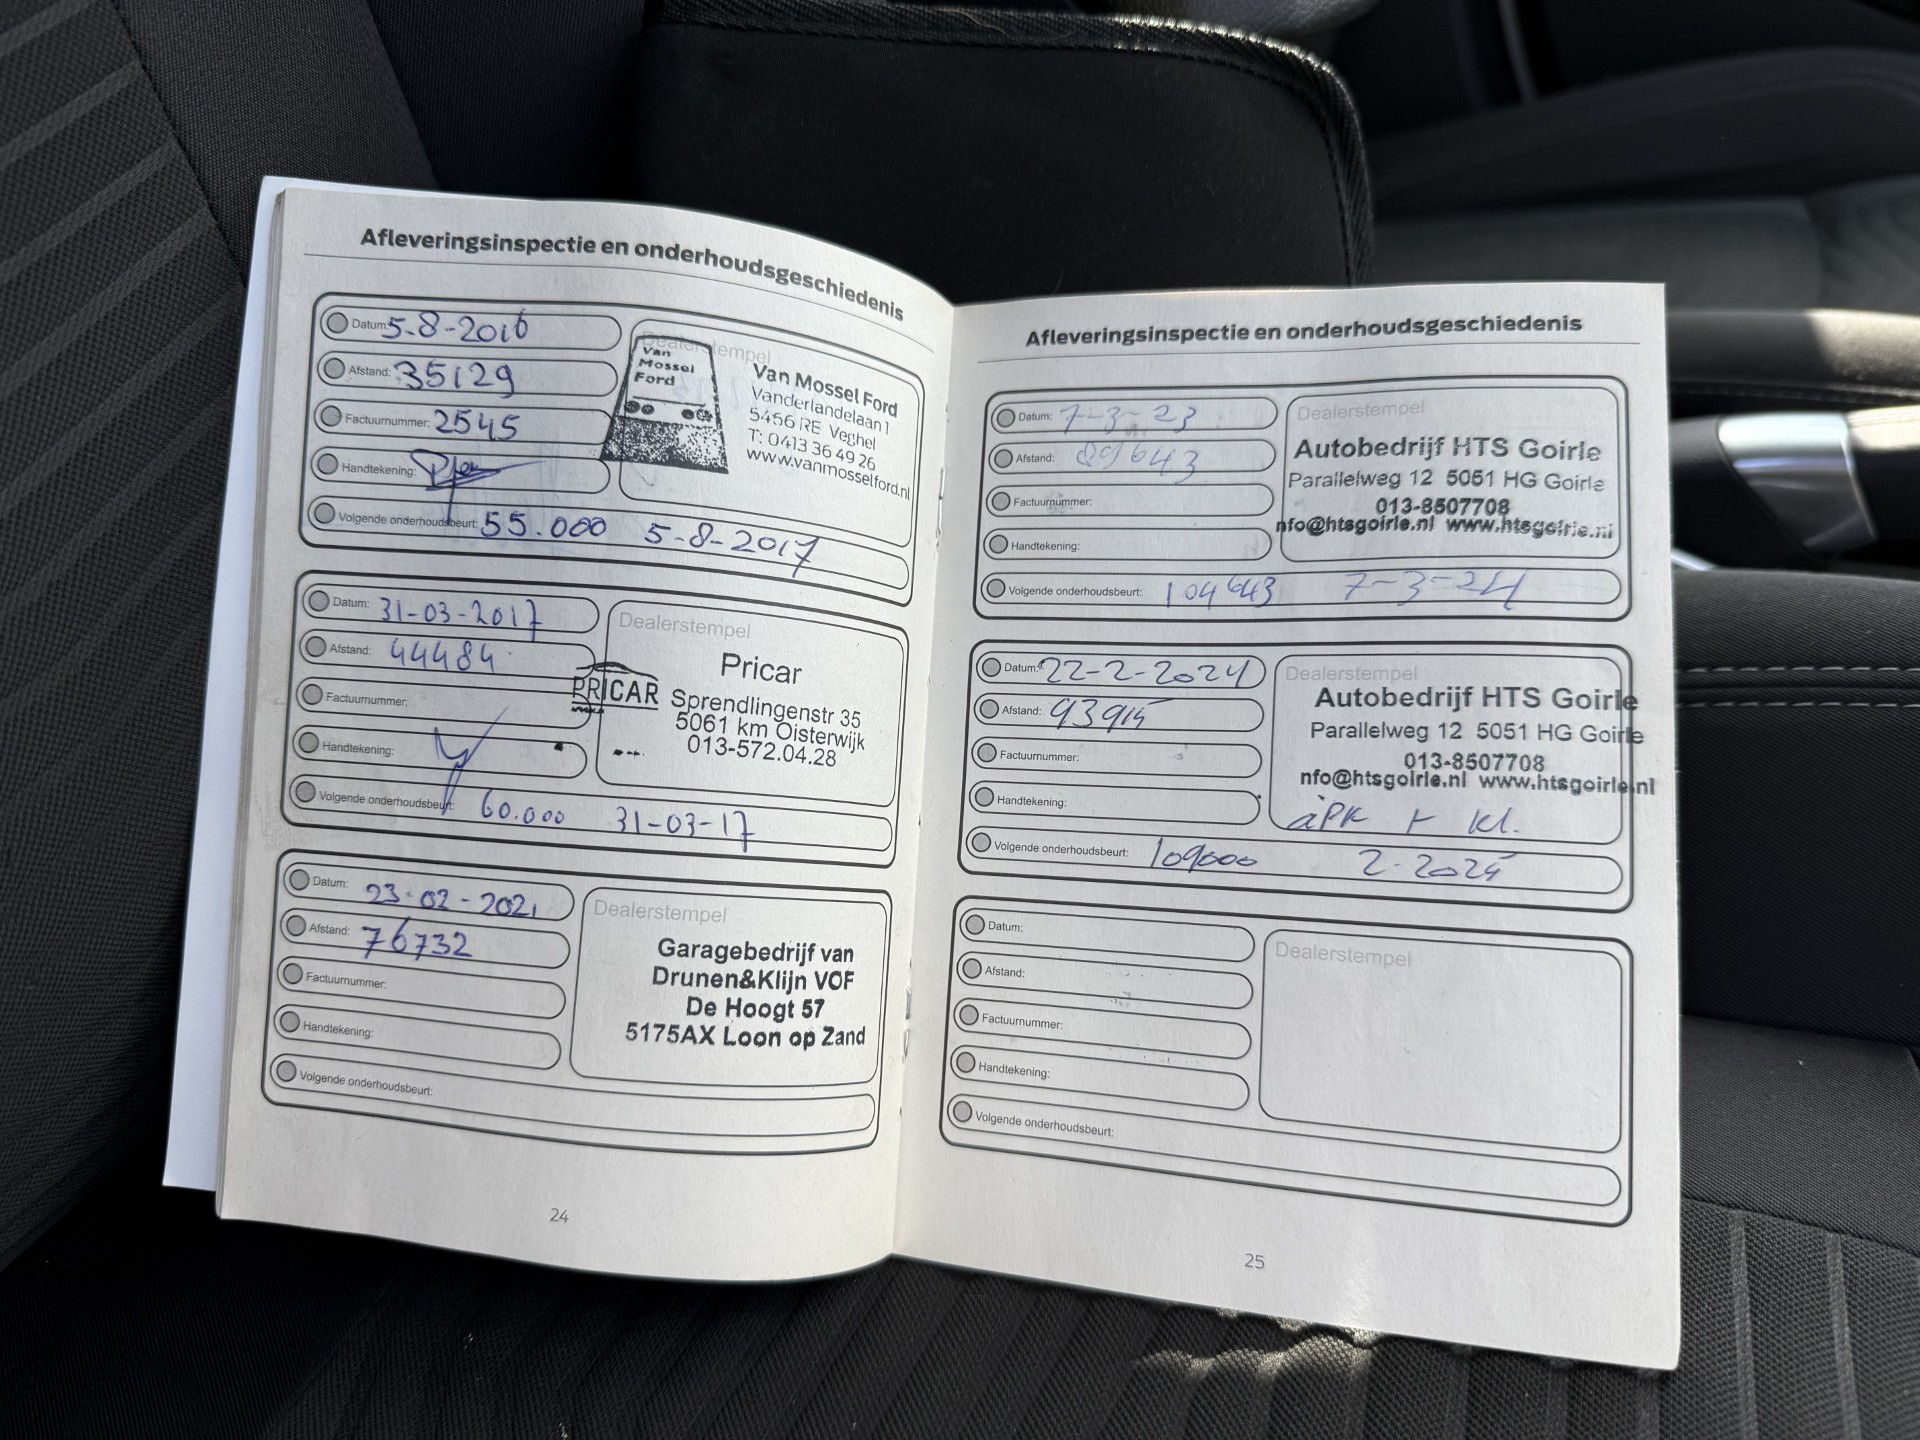 Afleveringsinspectie en onderhoudsgeschiedenis
Datum: 5-8-2016
Afstand: 35129
Factuurnummer: 2545
Handtekening:
Volgende onderhoudsbeurt: 55.000 5-8-2017
Dealerstempel
Van
Mossel
Ford
Van Mossel Ford
Vanderlandelaan 1
5466 RE Veghel
T: 0413 36 49 26
www.vanmosselford.nl
Datum: 31-03-2017
Afstand: 44484
Factuurnummer:
Handtekening:
Volgende onderhoudsbeurt: 60.000 31-03-17
Dealerstempel
PRICAR
Pricar
Sprendlingenstr 35
5061 km Oisterwijk
013-572.04.28
Datum: 23-02-2021
Afstand: 76732
Factuurnummer:
Handtekening:
Volgende onderhoudsbeurt:
Dealerstempel
Garagebedrijf van
Drunen&Klijn VOF
De Hoogt 57
5175AX Loon op Zand
24
Afleveringsinspectie en onderhoudsgeschiedenis
Datum: 7-3-23
Afstand: 89643
Factuurnummer:
Handtekening:
Volgende onderhoudsbeurt: 104643 7-3-24
Dealerstempel
Autobedrijf HTS Goirle
Parallelweg 12 5051 HG Goirle
013-8507708
nfo@htsgoirle.nl www.htsgoirle.nl
Datum: 22-2-2024
Afstand: 93915
Factuurnummer:
Handtekening:
Volgende onderhoudsbeurt: 109000 2-2025
Dealerstempel
Autobedrijf HTS Goirle
Parallelweg 12 5051 HG Goirle
013-8507708
nfo@htsgoirle.nl www.htsgoirle.nl
aPK + Kl.
Datum:
Afstand:
Factuurnummer:
Handtekening:
Volgende onderhoudsbeurt:
Dealerstempel
25